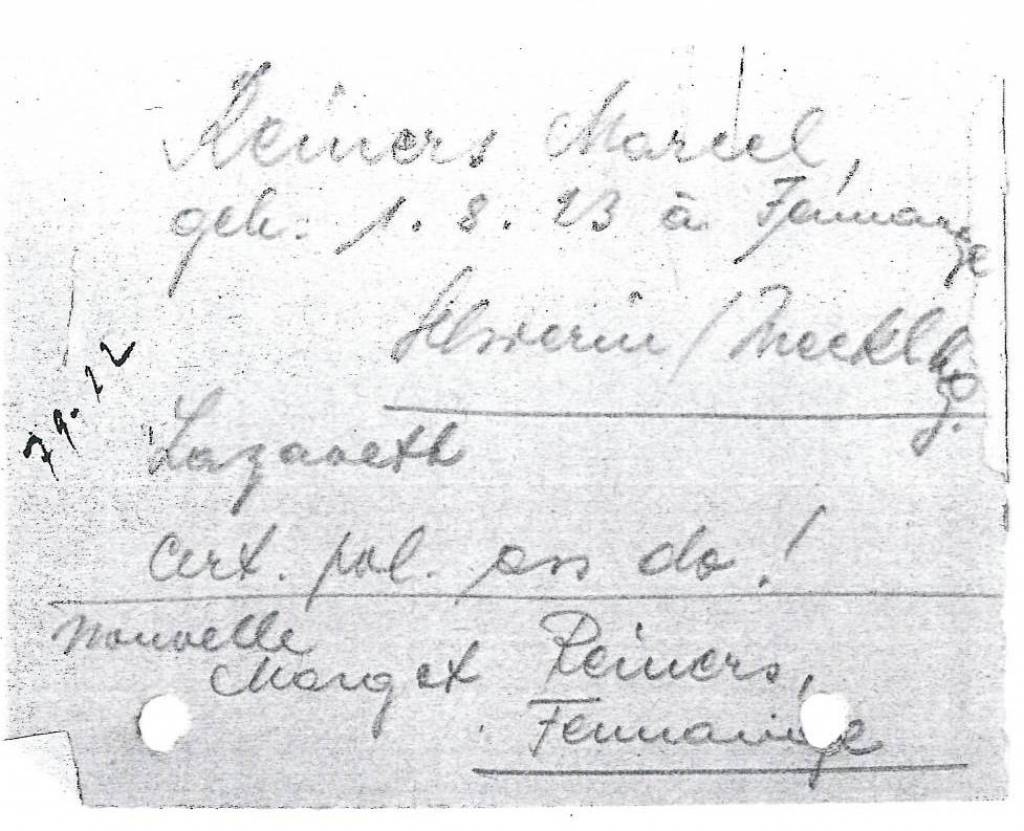 Reiners Marcel,
geb. 1. 8. 23 à Fennange
Schwerin / Mecklbg.
Lazareth
cert. pol. ass do!
nouvelle
Marget Reiners,
Fennange